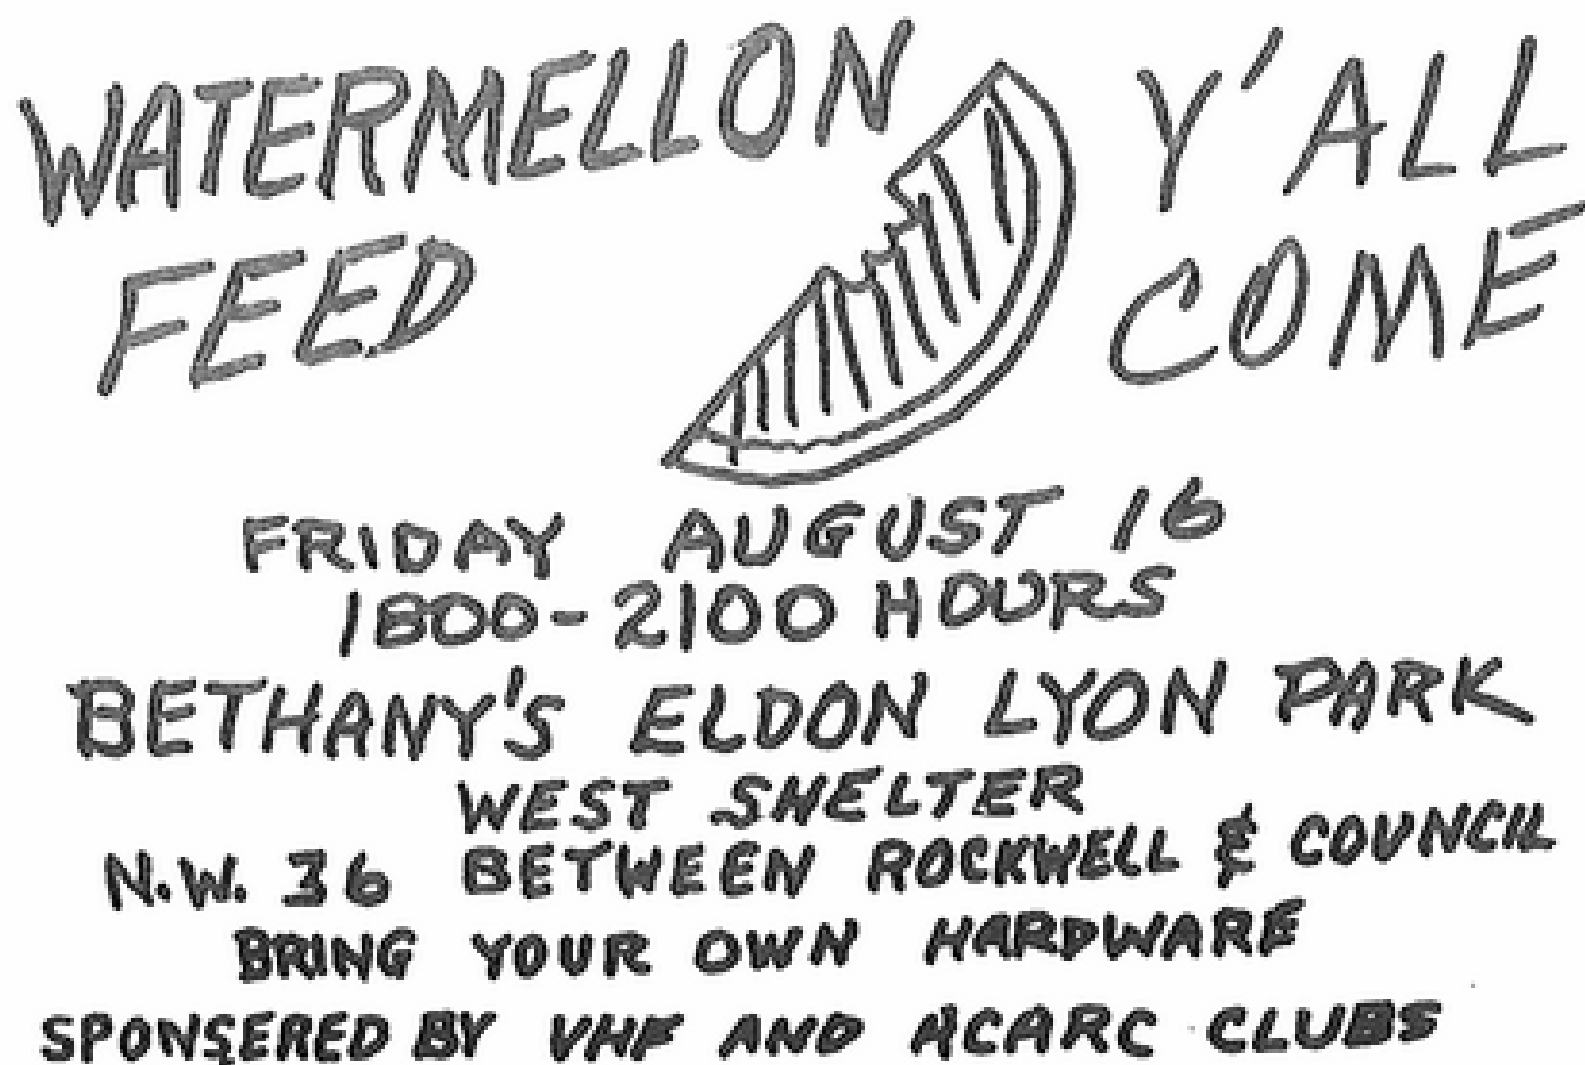 WATERMELLON
FEED
Y'ALL
COME
FRIDAY AUGUST 16
1800-2100 HOURS
BETHANY'S ELDON LYON PARK
WEST SHELTER
N.W. 36 BETWEEN ROCKWELL & COUNCIL
BRING YOUR OWN HARDWARE
SPONSERED BY VHF AND ACARC CLUBS